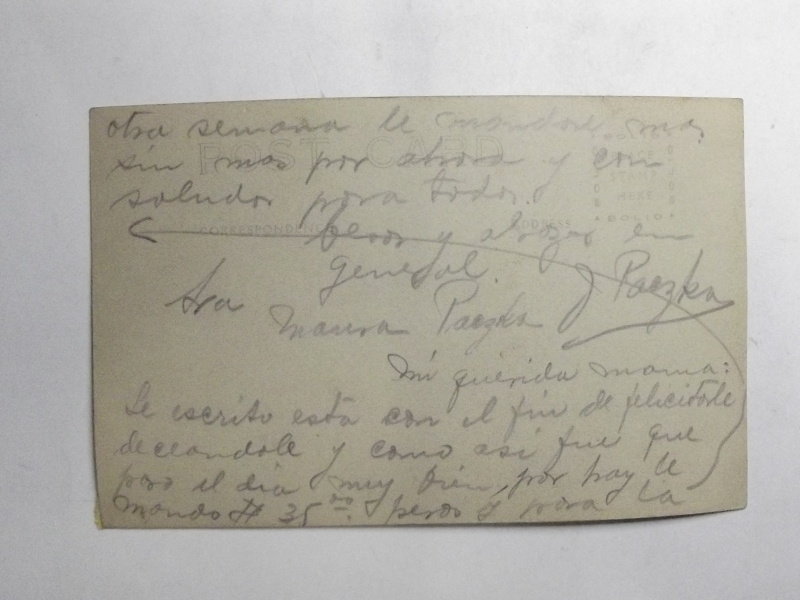 otra semana le mandare mas
sin mas por ahora y con
saludos para todos.
besos y abrazos en
general. J Paczka
Sra
Maura Paczka
Mi querida mama:
Le escrito esta con el fin de felicitarle
deceandole y como asi fue que
paso el dia muy bien, por hoy le
mando $ 35 00 pesos y para la
POST CARD
CORRESPONDENCE
ADDRESS
PLACE
STAMP
HERE
DOLIO